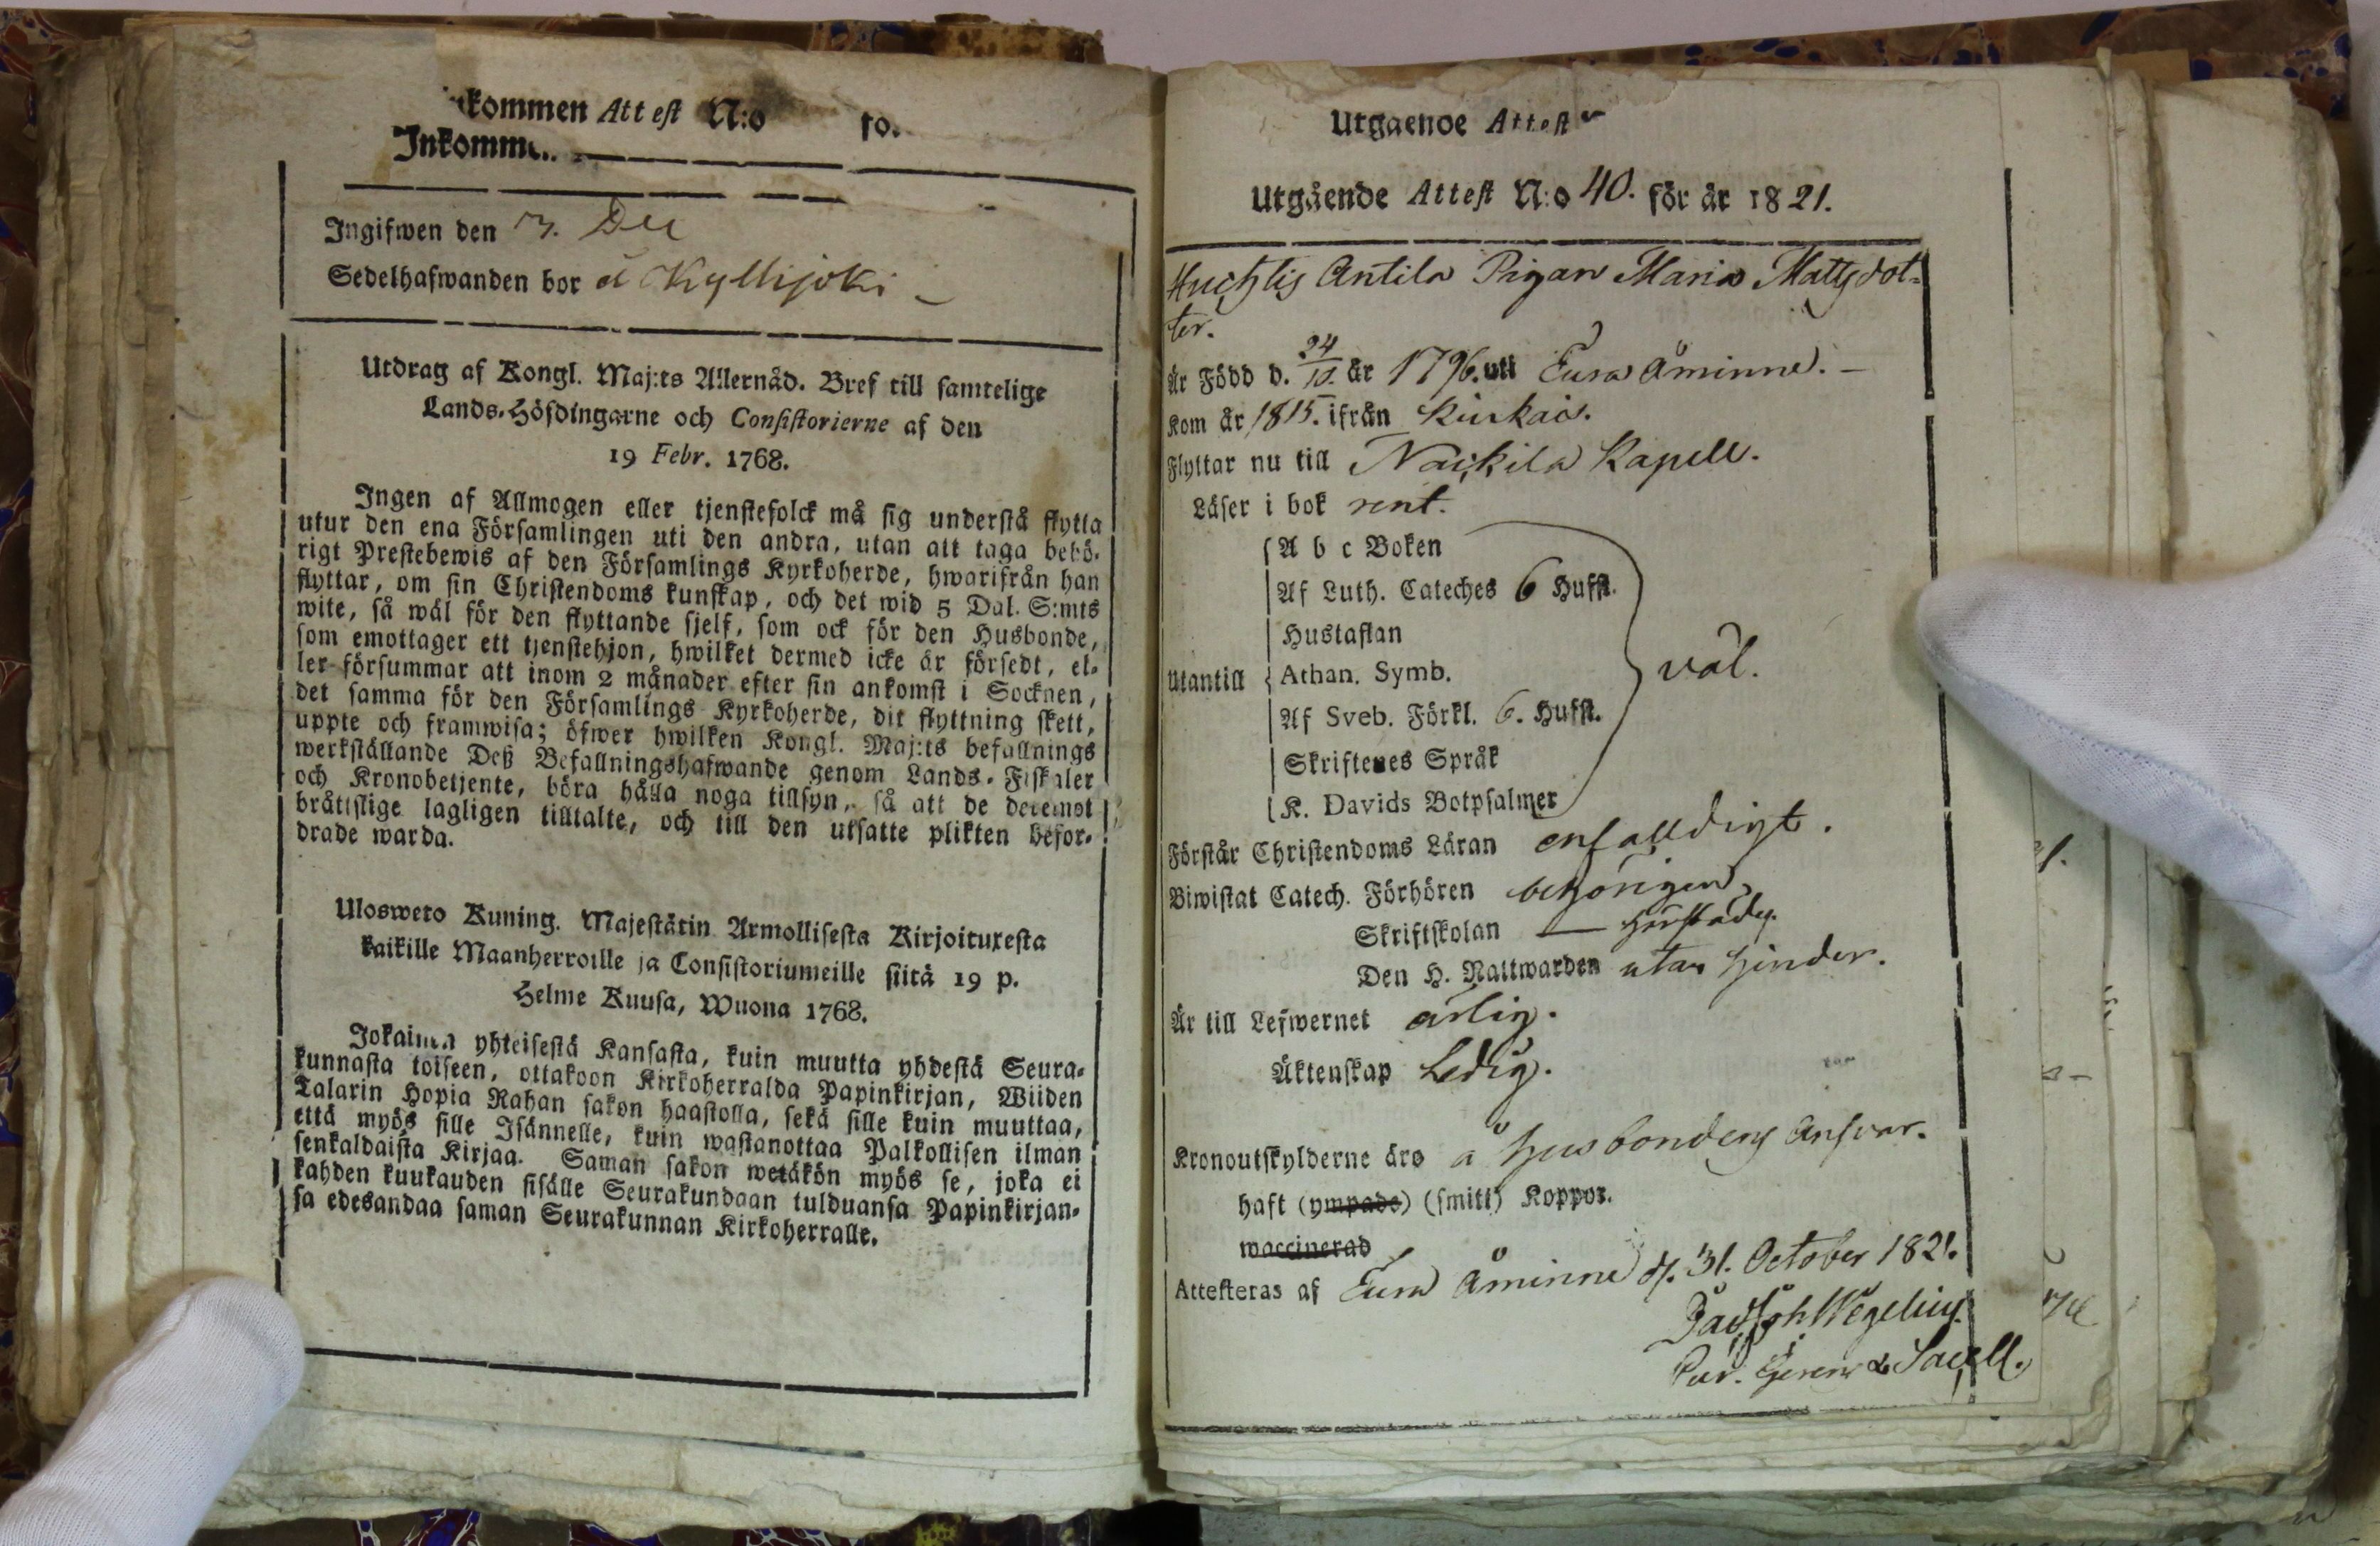 kommen Attest N:o fö.
Inkomm
Ingifwen den 3. Dec
Sedelhafwanden bor å Kyllijoki –
Utdrag af Kongl. Maj:ts Allernåd. Bref till samtelige
Lands-Höfdingarne och Consistorierne af den
19 Febr. 1768.
Ingen af Allmogen eller tjenstefolck må sig understå flytta
utur den ena Församlingen uti den andra, utan att taga behö-
rigt Prestebewis af den Församlings Kyrkoherde, hwarifrån han
flyttar, om sin Christendoms kunskap, och det wid 5 Dal. S:mts
wite, så wäl för den flyttande sjelf, som ock för den Husbonde,
som emottager ett tjenstehjon, hwilket dermed icke är försedt, el-
ler försummar att inom 2 månader efter sin ankomst i Socknen,
det samma för den Församlings Kyrkoherde, dit flyttning skett,
uppte och framwisa; öfwer hwilken Kongl. Maj:ts befallnings
werkställande Deß Befallningshafwande genom Lands-Fiskaler
och Kronobetjente, böra hålla noga tillsyn, så att de deremot
bråttslige lagligen tilltalte, och till den utsatte plikten befor-
drade warda.
Uloswero Kuning. Majestätin Armollisesta Kirjoituxesta
kaikille Maanherroille ja Consistoriumeille siitä 19 p.
Helme Kuusa, Wuona 1768.
Jokainen yhteisestä Kansasta, kuin muutta yhdestä Seura-
kunnasta toiseen, ottakoon Kirkoherralda Papinkirjan, Wiiden
Talarin Hopia Rahan sakon haastolla, sekä sille kuin muuttaa,
että myös sille Isännelle, kuin wastanottaa Palkollisen ilman
senkaldaista Kirjaa. Saman sakon wetäkön myös se, joka ei
kahden kuukauden sisälle Seurakundaan tulduansa Papinkirjan-
sa edesandaa saman Seurakunnan Kirkoherralle.
Utgaende Attest
Utgående Attest N:o 40. för år 1821.
Huchtis Antila Pigan Maria Mattsdot-
ter.
Är Född d. 24/10. år 1796. uti Eura Åminne. –
Kom år 1815. ifrån Kiukais.
Flyttar nu till Nackila Kapell.
Läser i bok rent.
A b c Boken
Af Luth. Cateches 6 Hufst.
Hustaflan
Utantill Athan. Symb. väl.
Af Sveb. Förkl. 6. Hufst.
Skriftenes Språk
K. Davids Botpsalmer
Förstår Christendoms Läran enfalldigt.
Biwistat Catech. Förhören behörigen
Skriftskolan —
Den H. Nattwarden utan hinder.
Är till Lefwernet ärlig.
Äktenskap Ledig.
Kronoutskylderne äro å husbondens Ansvar.
haft (ympade) (smitt) Koppor.
waccinerad
Attesteras af Eura Åminne d. 31. October 1821.
Wegelius
Sacell.